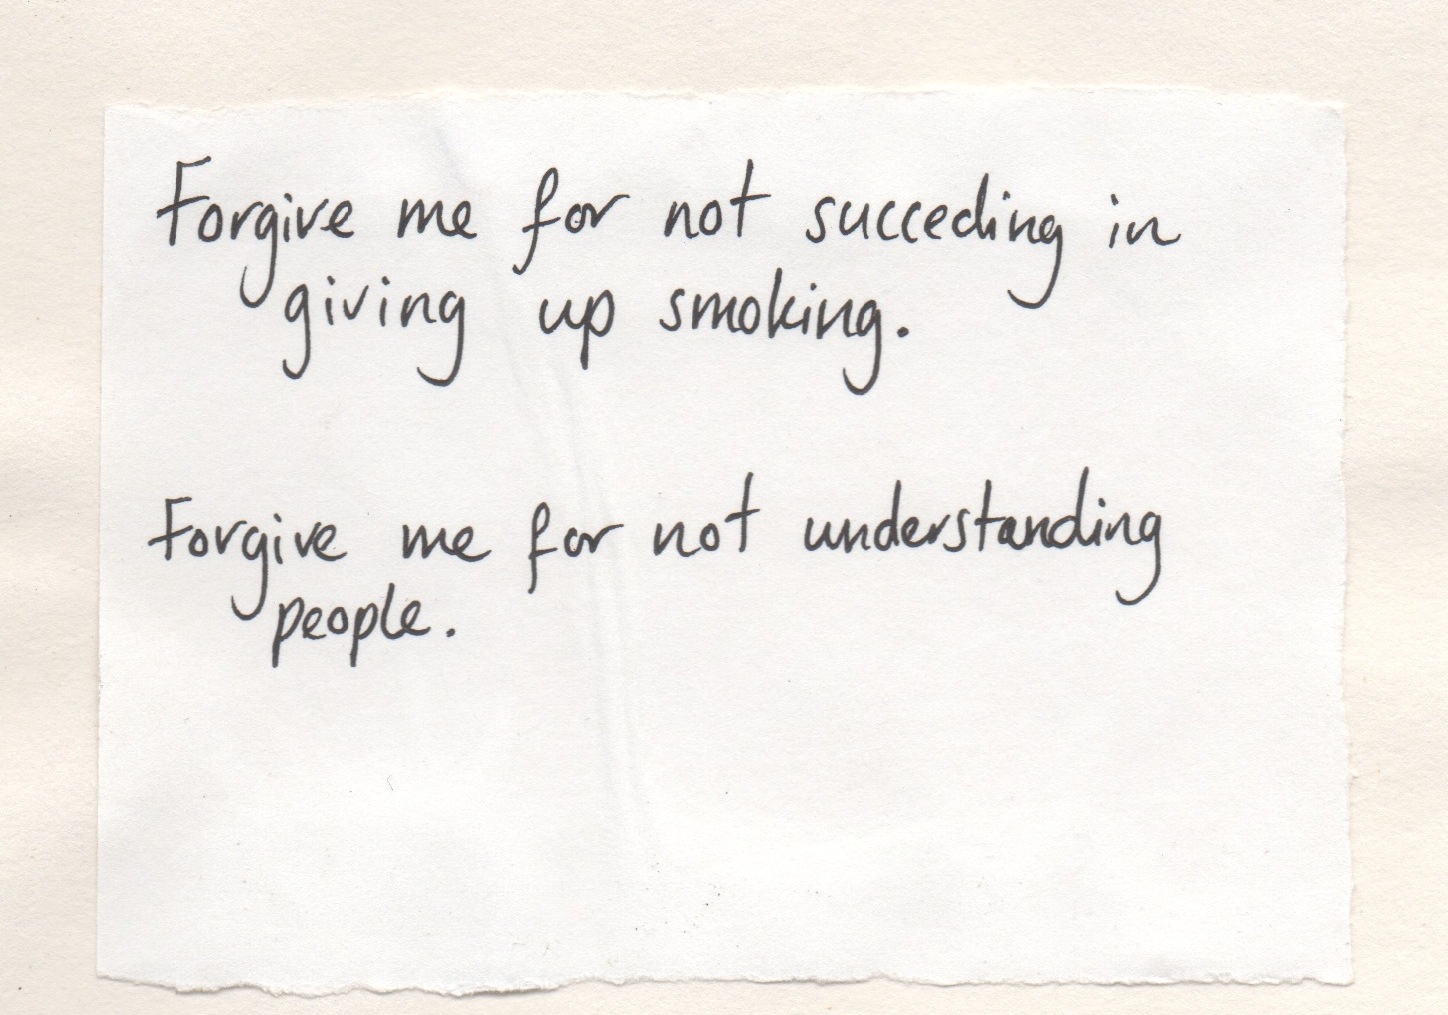 Forgive me for not succeding in
giving up smoking.
Forgive me for not understanding
people.